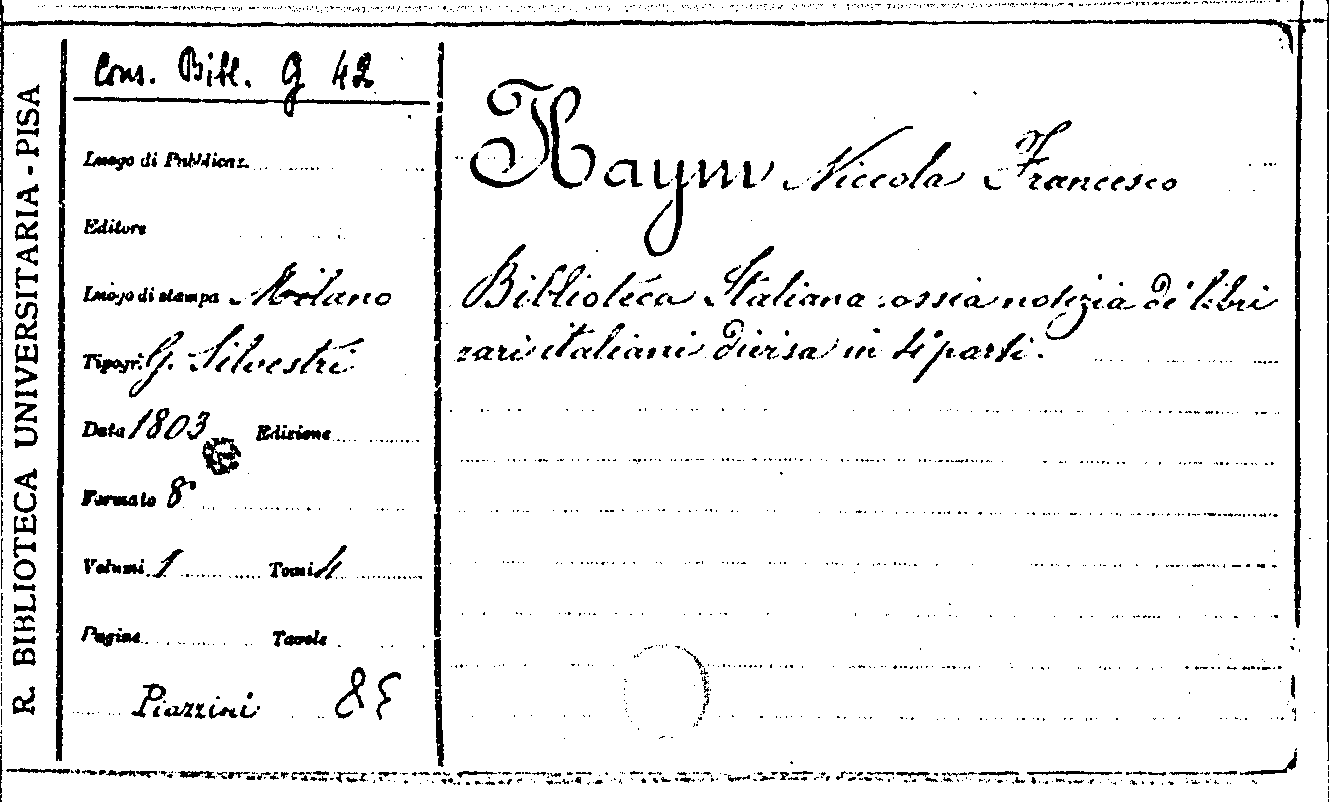 R. BIBLIOTECA UNIVERSITARIA - PISA
Cons. Bibl. G 42
Luogo di Pubblicaz.
Editore
Luogo di stampa Milano
Tipogr. G. Silvestri
Data 1803 Edizione
Formato 8°
Volumi 1 Tomi 4
Pagine Tavole
Piazzini
Haym Niccola Francesco
Biblioteca Italiana ossia notizia de' libri
rari italiani divisa in 4 parti.